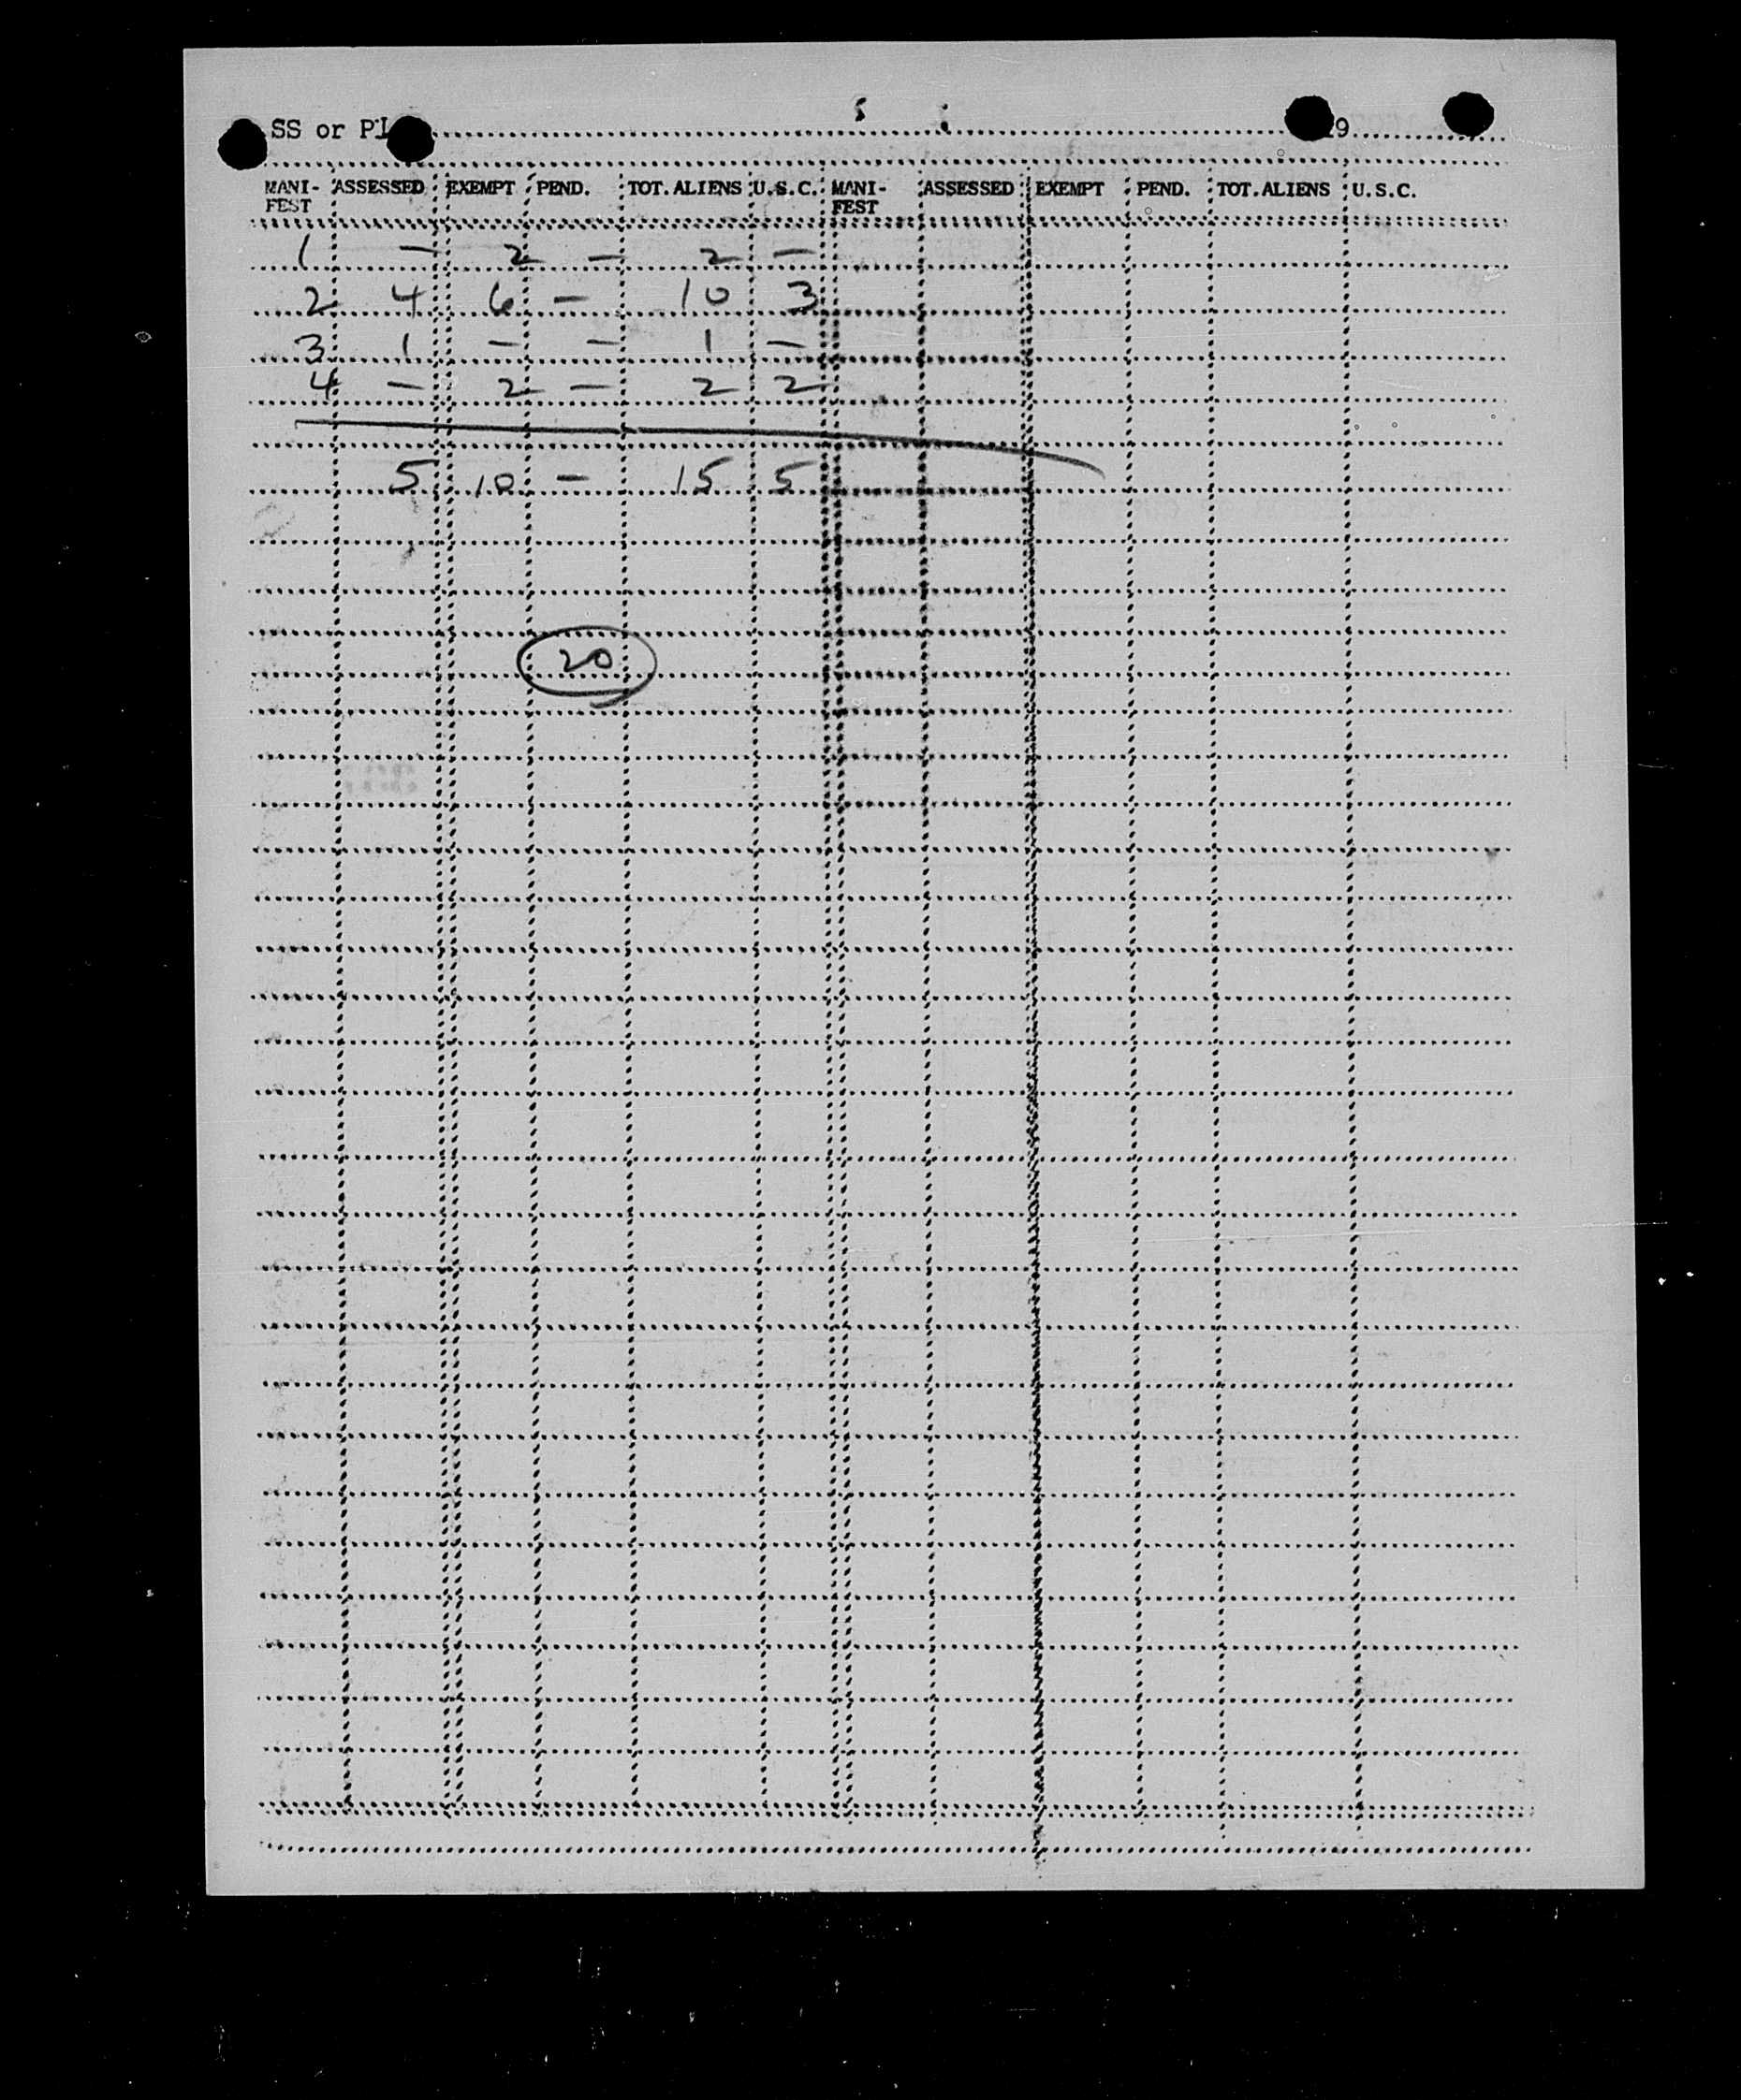 SS or Pl 19
MANI-FEST ASSESSED EXEMPT PEND. TOT. ALIENS U.S.C. MANI-FEST ASSESSED EXEMPT PEND. TOT. ALIENS U.S.C.
1 — 2 — 2 —
2 4 6 — 10 3
3 1 — — 1 —
4 — 2 — 2 2
5 10 — 15 5
20